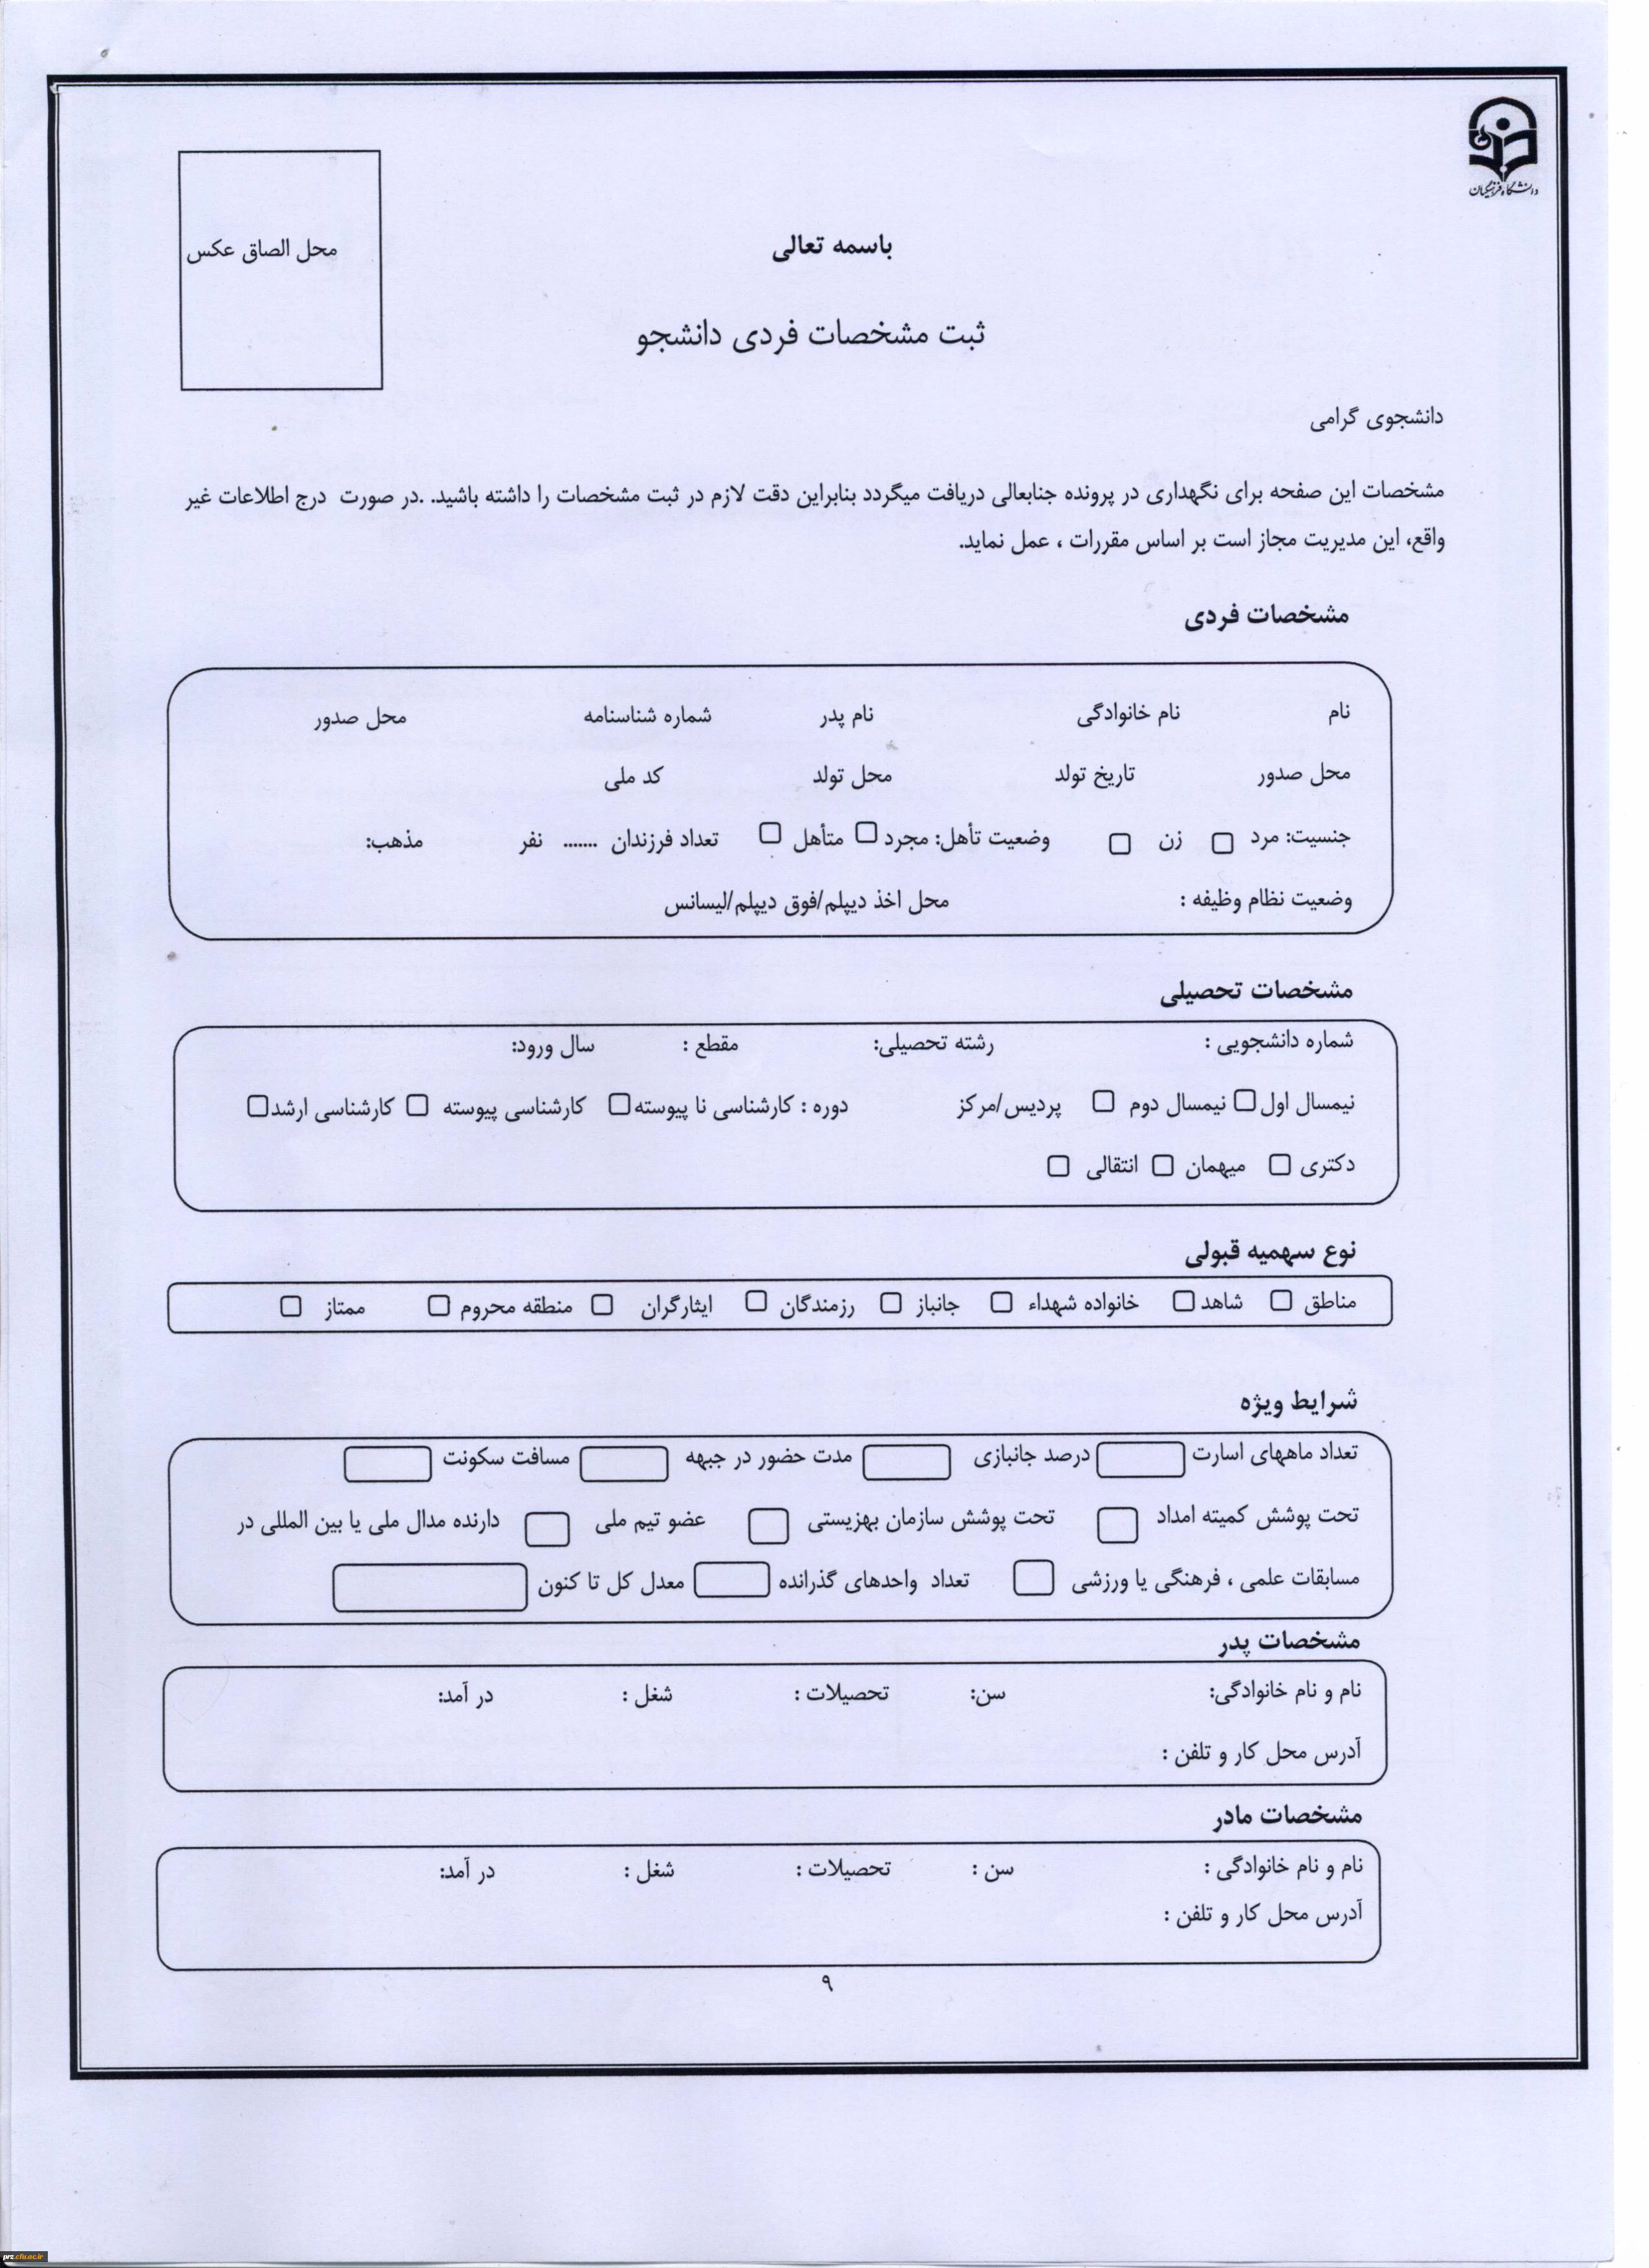 دانشگاه فرهنگیان
محل الصاق عکس
باسمه تعالی
ثبت مشخصات فردی دانشجو
دانشجوی گرامی
مشخصات این صفحه برای نگهداری در پرونده جنابعالی دریافت میگردد بنابراین دقت لازم در ثبت مشخصات را داشته باشید. .در صورت درج اطلاعات غیر
واقع، این مدیریت مجاز است بر اساس مقررات ، عمل نماید.
مشخصات فردی
نام نام خانوادگی نام پدر شماره شناسنامه محل صدور
محل صدور تاریخ تولد محل تولد کد ملی
جنسیت: مرد زن وضعیت تأهل: مجرد متأهل تعداد فرزندان ....... نفر مذهب:
وضعیت نظام وظیفه : محل اخذ دیپلم/فوق دیپلم/لیسانس
مشخصات تحصیلی
شماره دانشجویی : رشته تحصیلی: مقطع : سال ورود:
نیمسال اول نیمسال دوم پردیس/مرکز دوره : کارشناسی نا پیوسته کارشناسی پیوسته کارشناسی ارشد
دکتری میهمان انتقالی
نوع سهمیه قبولی
مناطق شاهد خانواده شهداء جانباز رزمندگان ایثارگران منطقه محروم ممتاز
شرایط ویژه
تعداد ماههای اسارت درصد جانبازی مدت حضور در جبهه مسافت سکونت
تحت پوشش کمیته امداد تحت پوشش سازمان بهزیستی عضو تیم ملی دارنده مدال ملی یا بین المللی در
مسابقات علمی ، فرهنگی یا ورزشی تعداد واحدهای گذرانده معدل کل تا کنون
مشخصات پدر
نام و نام خانوادگی: سن: تحصیلات : شغل : در آمد:
آدرس محل کار و تلفن :
مشخصات مادر
نام و نام خانوادگی : سن : تحصیلات : شغل : در آمد:
آدرس محل کار و تلفن :
۹
prz.cfu.ac.ir